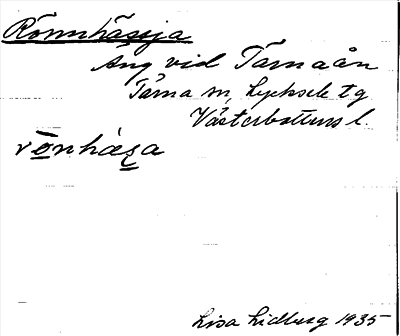 Rönnhässja
Äng vid Tärnaån
Tärna sn, Lycksele tg
Västerbottens l.
rönhäʃa
Lisa Lidberg 1935